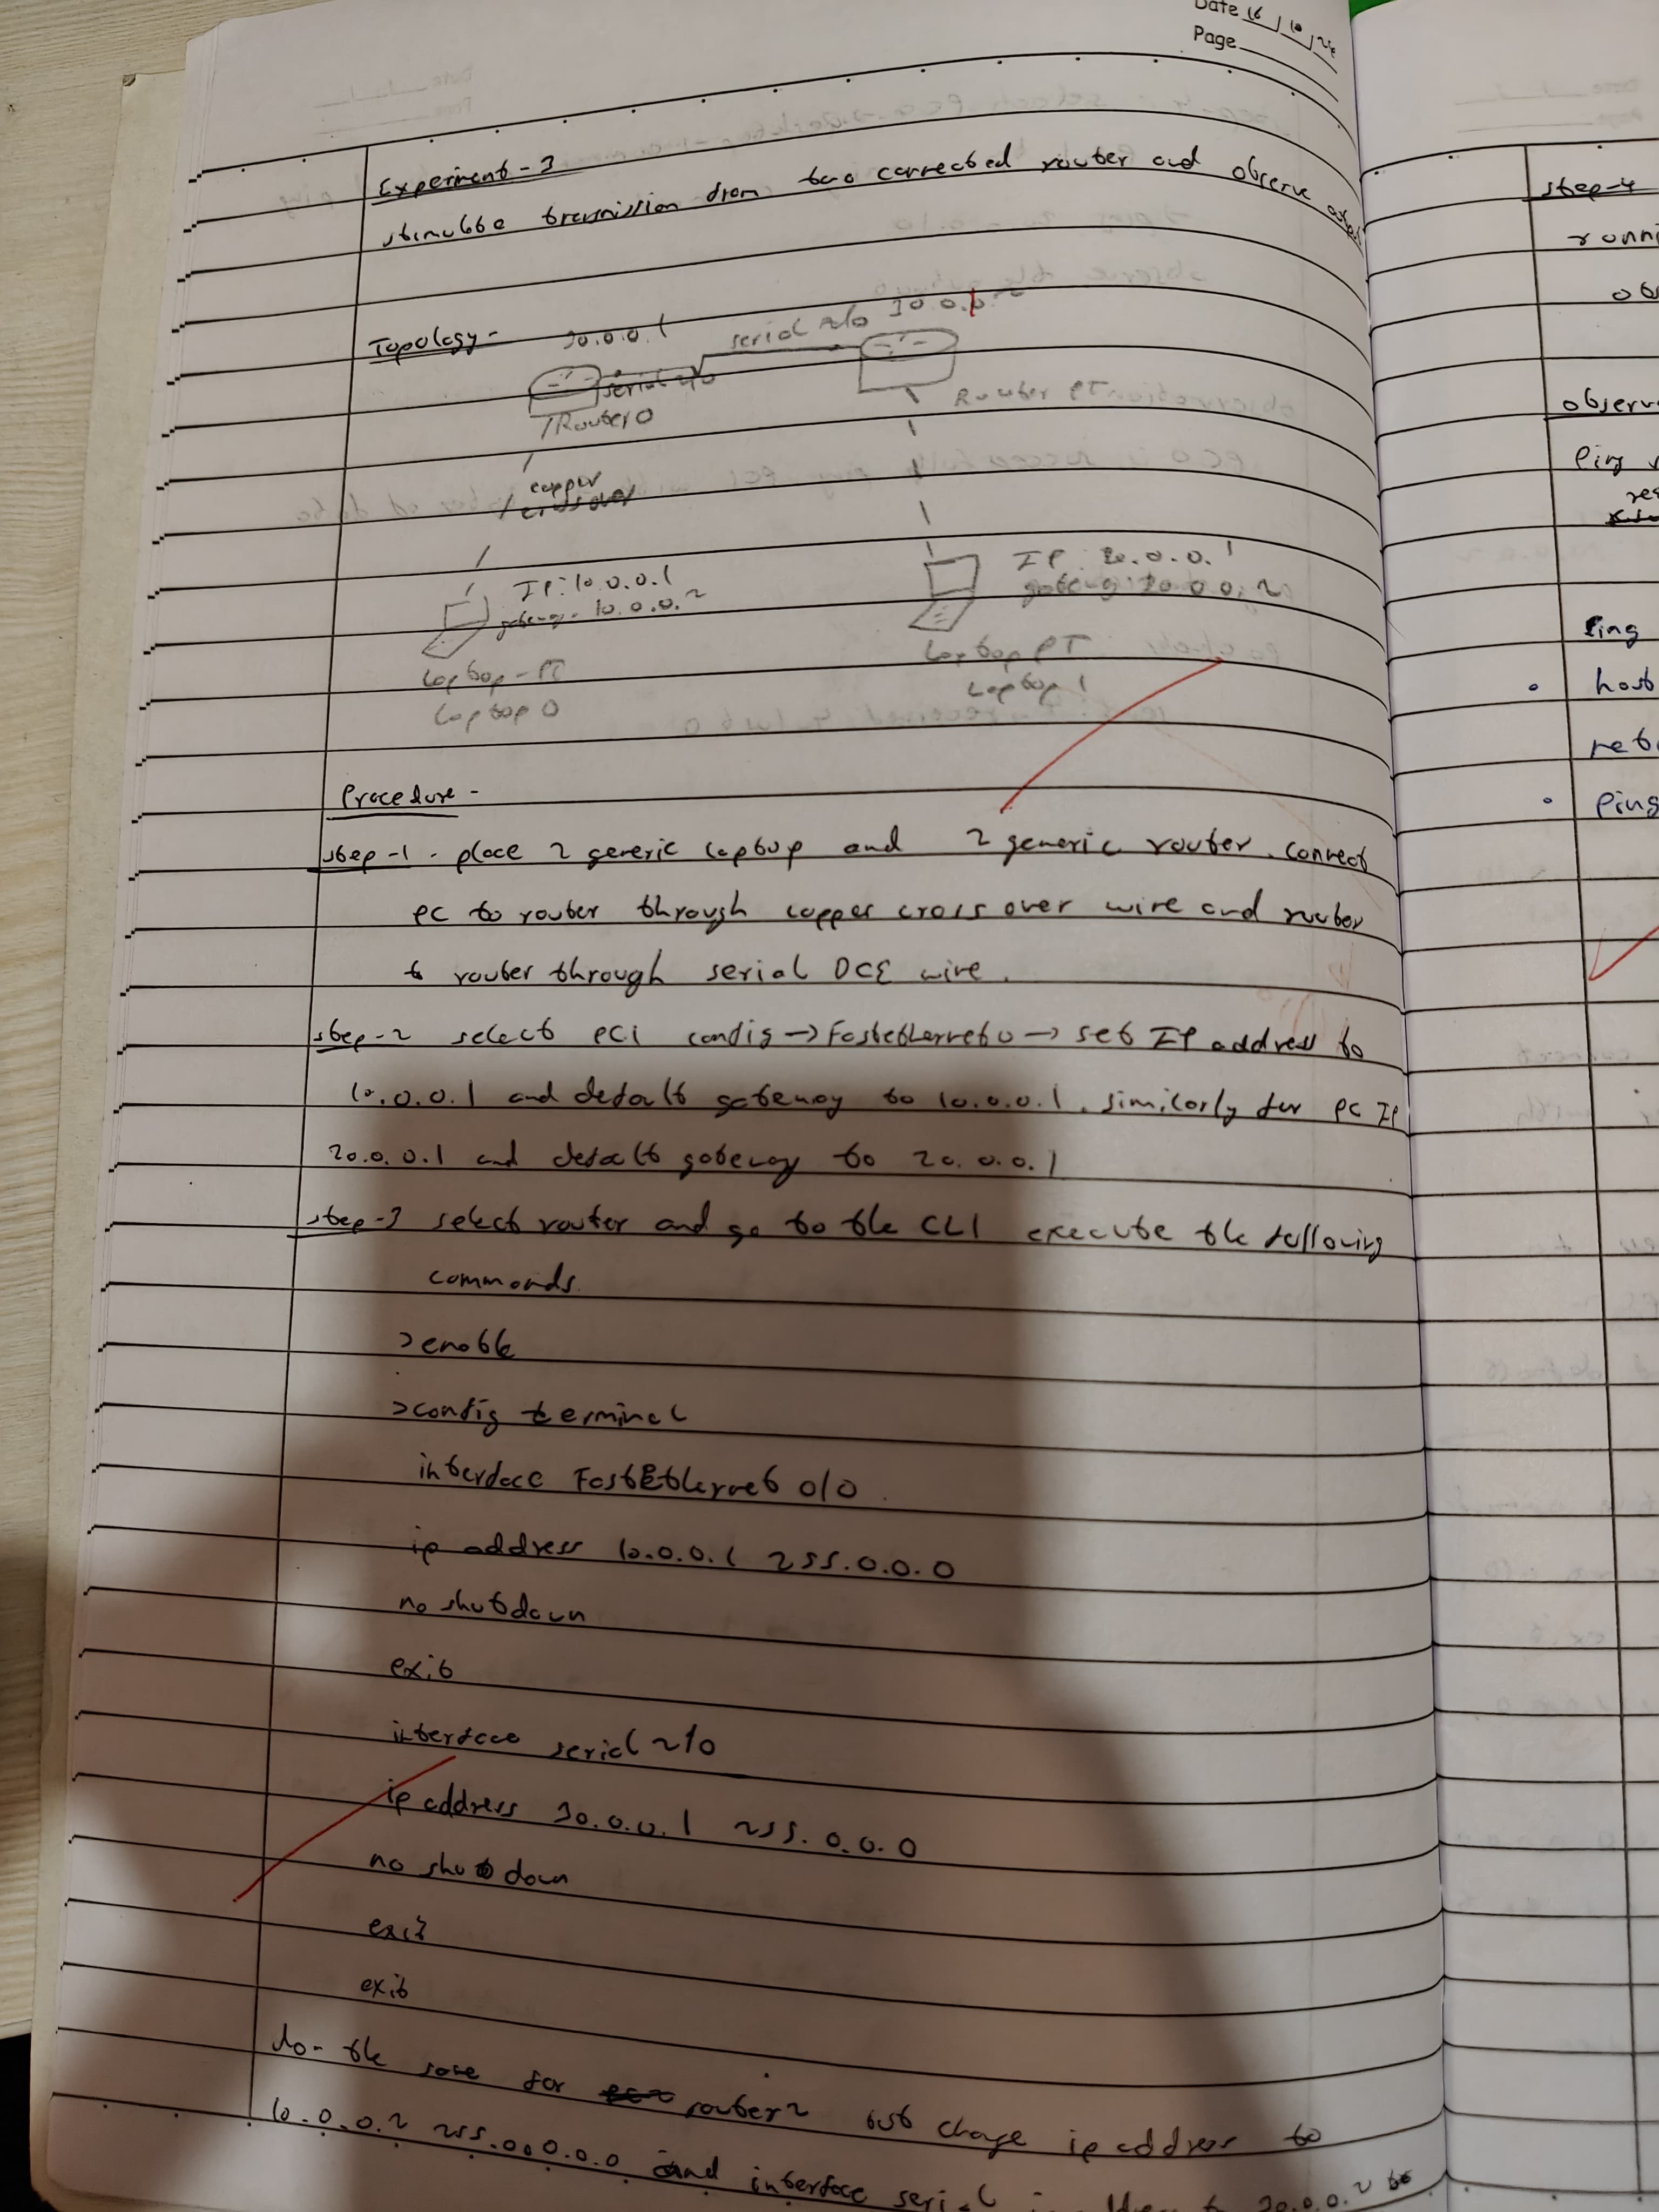 Date 16 / 10 / 24
Page
Experiment - 3
stimulate transmission from two connected router and observe output
Topology -
30.0.0.1
serial 2/0
30.0.0.2
serial 2/0
Router 0
Router PT
copper
crossover
IP: 10.0.0.1
gateway - 10.0.0.2
IP: 20.0.0.1
gateway: 20.0.0.2
Laptop - PT
Laptop 0
Laptop PT
Laptop 1
Procedure -
step -1 - place 2 generic laptop and 2 generic router. connect
PC to router through copper cross over wire and router
to router through serial DCE wire.
step -2 select PC1 config → Fastethernet0 → set IP address to
10.0.0.1 and default gateway to 10.0.0.1. similarly for PC IP
20.0.0.1 and default gateway to 20.0.0.1
step -3 select router and go to the CLI execute the following
commands.
>enable
>config terminal
interface FastEthernet 0/0
ip address 10.0.0.1 255.0.0.0
no shutdown
exit
interface serial 2/0
ip address 30.0.0.1 255.0.0.0
no shutdown
exit
exit
do- the same for router 2 but change ip address to
10.0.0.2 255.0.0.0.0 and interface serial 30.0.0.2 to
step-4
runni
ob
observ
Ping
res
Ping
• host
ret
• Ping